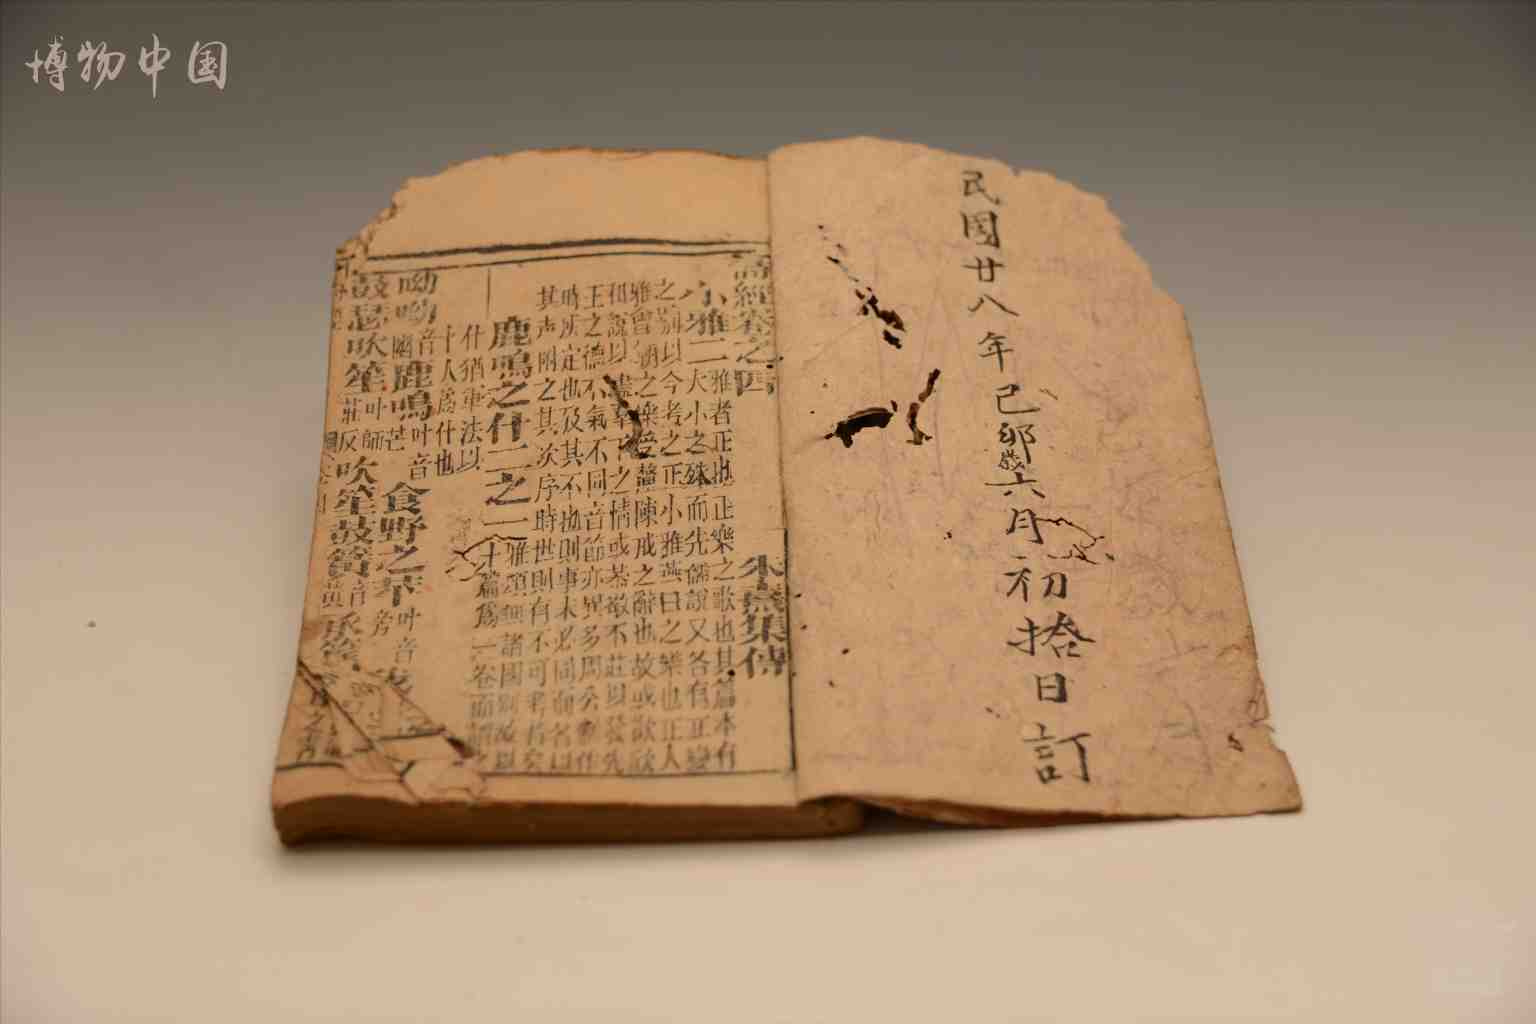 博物中国
民國廿八年己卯歲六月初拾日訂
詩經卷之四
朱熹集傳
小雅二
雅者正也正樂之歌也其篇本有
大小之殊而先儒說又各有正變
之別以今考之正小雅燕曰之樂也正人
雅會朝之樂受釐陳戒之辭也故或歡欣
和說以盡羣下之情或恭敬不莊以發先
王之德不氣不同音節亦異多周矣制作
時所定也及其不也則事未必同而名以
其声附之其次序時世則有不可考者矣
鹿鳴之什二之一
雅頌無諸國別故以
十篇爲一卷而謂之
什猶軍法以
十人爲什也
呦呦音幽鹿鳴叶音芒食野之苹叶音旁
鼓瑟吹笙叶師莊反吹笙鼓簧音黃承筐